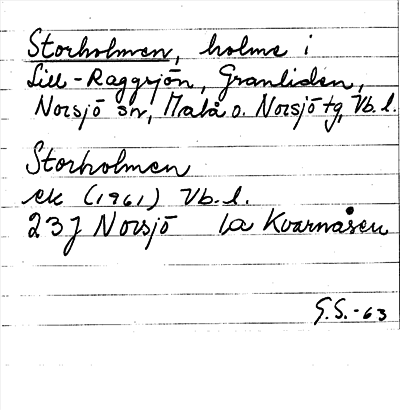 Storholmen, holme i
Lill-Raggsjön, Granliden,
Norsjö sn, Malå o. Norsjö tg, Vb. l.
Storholmen
ek (1961) Vb. l.
23J Norsjö 1a Kvarnåsen
G.S.-63